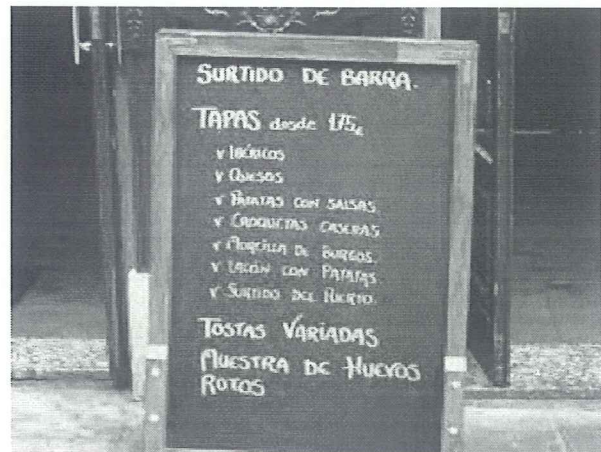 SURTIDO DE BARRA.
TAPAS desde 1'75€
v IBÉRICOS
v QUESOS
v PATATAS CON SALSAS
v CROQUETAS CASERAS
v MORCILLA DE BURGOS.
v LACÓN CON PATATAS.
v SURTIDO DEL HUERTO.
TOSTAS VARIADAS
MUESTRA DE HUEVOS
ROTOS